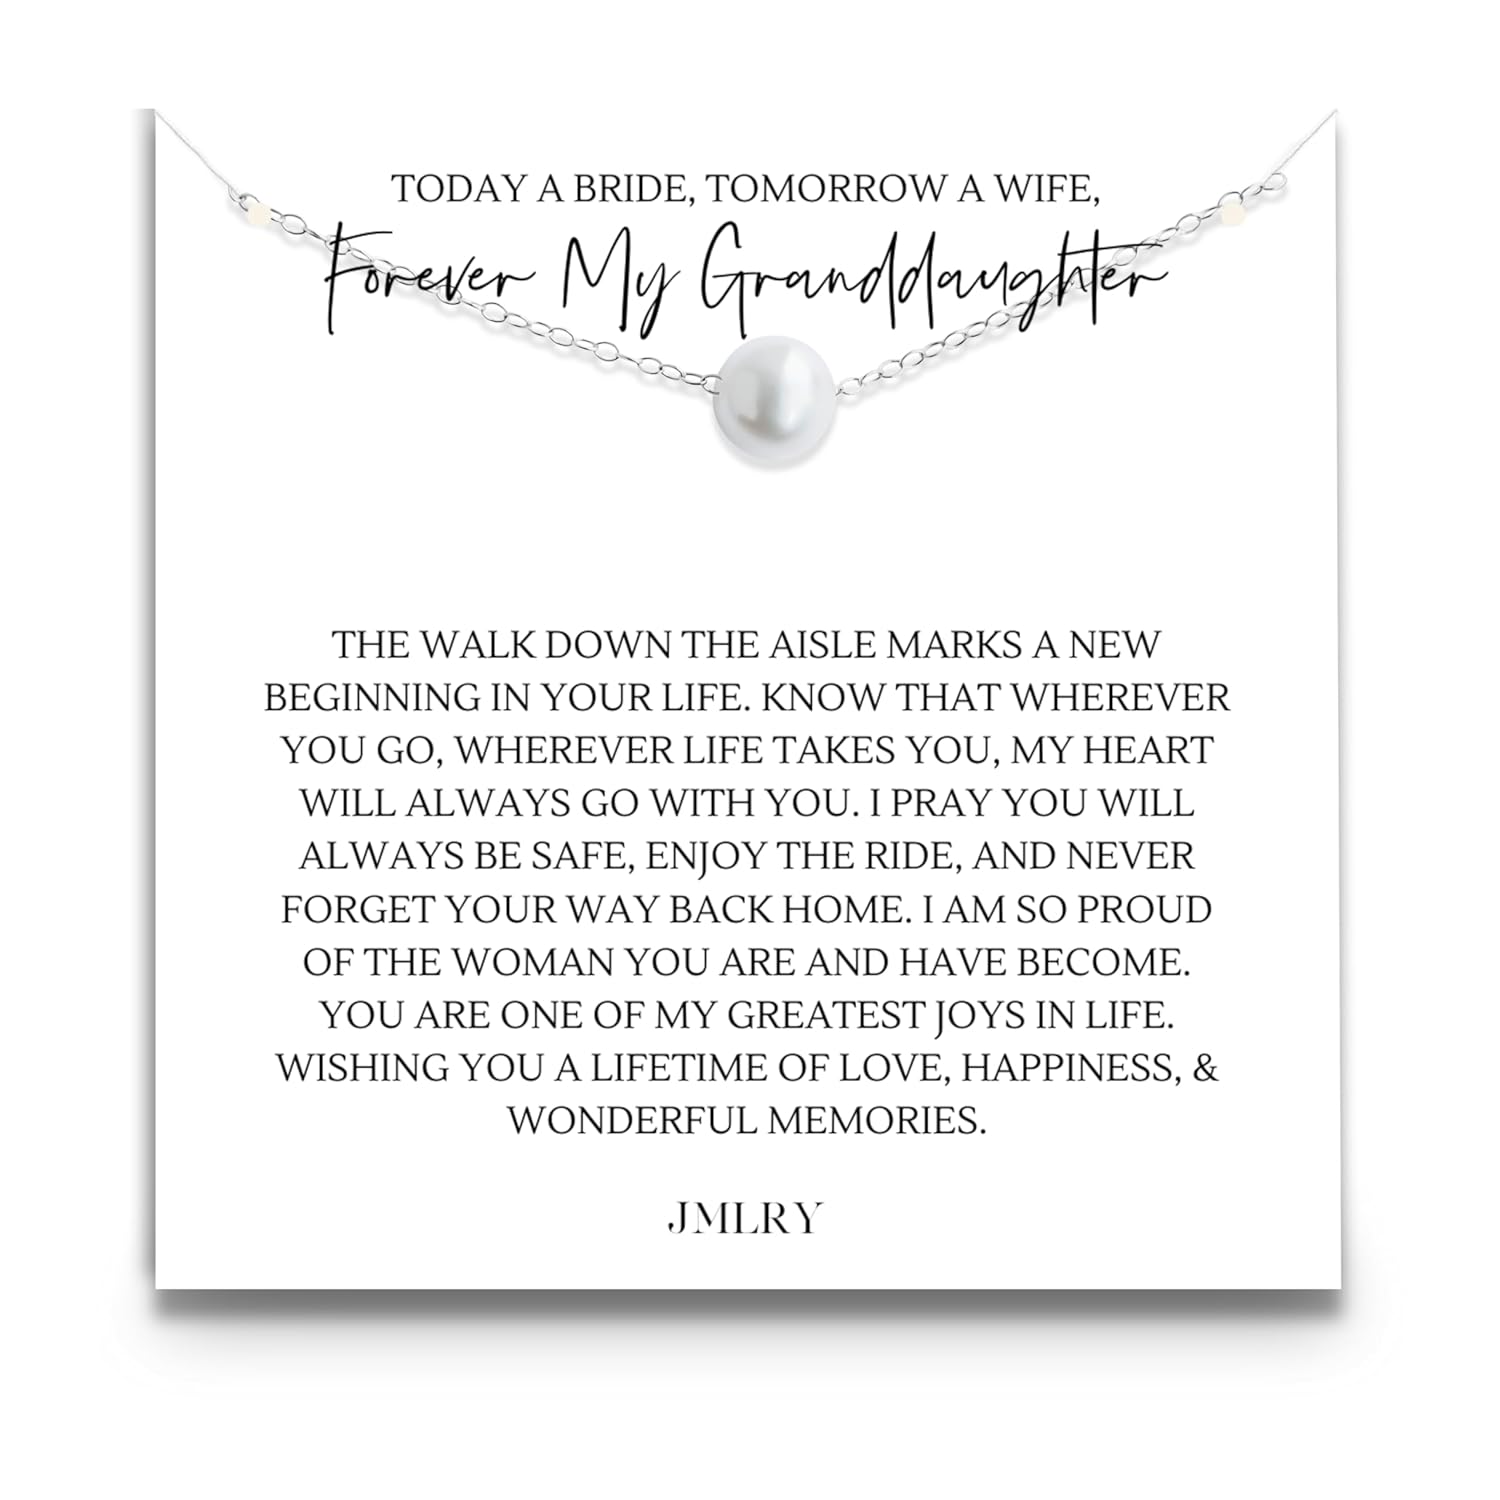 TODAY A BRIDE, TOMORROW A WIFE,
Forever My Granddaughter
THE WALK DOWN THE AISLE MARKS A NEW
BEGINNING IN YOUR LIFE. KNOW THAT WHEREVER
YOU GO, WHEREVER LIFE TAKES YOU, MY HEART
WILL ALWAYS GO WITH YOU. I PRAY YOU WILL
ALWAYS BE SAFE, ENJOY THE RIDE, AND NEVER
FORGET YOUR WAY BACK HOME. I AM SO PROUD
OF THE WOMAN YOU ARE AND HAVE BECOME.
YOU ARE ONE OF MY GREATEST JOYS IN LIFE.
WISHING YOU A LIFETIME OF LOVE, HAPPINESS, &
WONDERFUL MEMORIES.
JMLRY